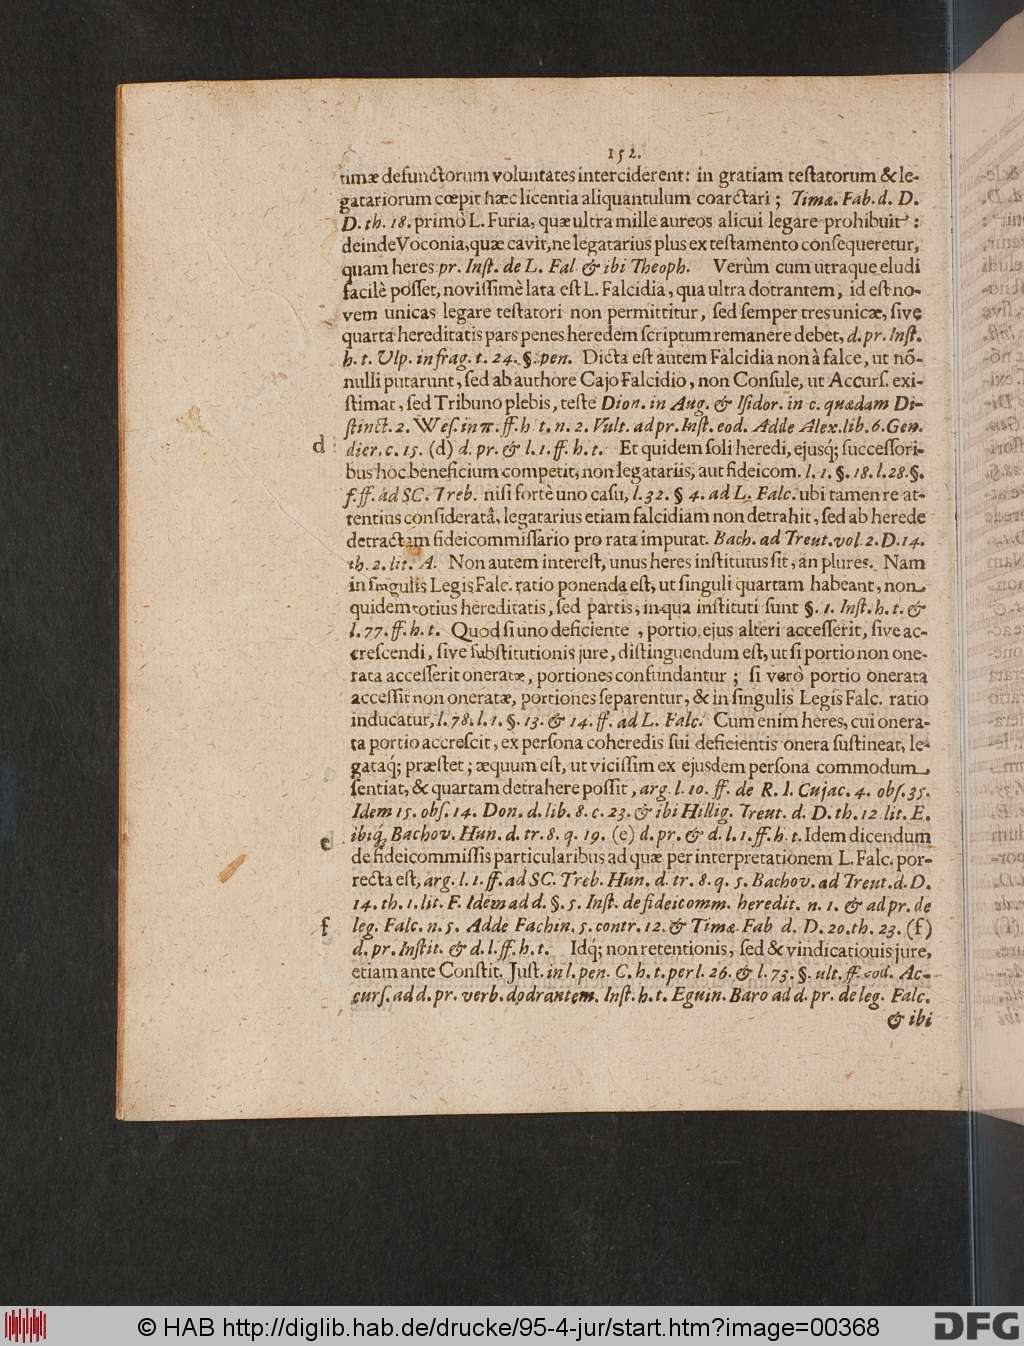 152.
timæ defunctorum voluntates interciderent: in gratiam testatorum & le-
gatariorum cœpit hæc licentia aliquantulum coarctari; Timæ. Fab. d. D.
D. th. 18. primò L. Furia, quæ ultra mille aureos alicui legare prohibuit:
deinde Voconia, quæ cavit, ne legatarius plus ex testamento consequeretur,
quam heres pr. Inst. de L. Fal & ibi Theoph. Verùm cum utraque eludi
facilè posset, novissimè lata est L. Falcidia, qua ultra dotrantem, id est no-
vem unicas legare testatori non permittitur, sed semper tres unicæ, sive
quarta hereditatis pars penes heredem scriptum remanere debet, d. pr. Inst.
h. t. Ulp. in frag. t. 24. §. pen. Dicta est autem Falcidia non à falce, ut nõ-
nulli putarunt, sed ab authore Cajo Falcidio, non Consule, ut Accurs. exi-
stimat, sed Tribuno plebis, teste Dion. in Aug. & Isidor. in c. quædam Di-
stinct. 2. Wes. in π. ff. h t. n. 2. Vult. ad pr. Inst. eod. Adde Alex. lib. 6. Gen.
d dier. c. 15. (d) d. pr. & l. 1. ff. h. t. Et quidem soli heredi, ejusq; successori-
bus hoc beneficium competit, non legatariis, aut fideicom. l. 1. §. 18. l. 28. §.
f. ff. ad SC. Treb. nisi fortè uno casu, l. 32. § 4. ad L. Falc. ubi tamen re at-
tentius consideratâ, legatarius etiam falcidiam non detrahit, sed ab herede
detractam fideicommissario pro rata imputat. Bach. ad Treut. vol. 2. D. 14.
th. 2. lit. A. Non autem interest, unus heres institutus sit, an plures. Nam
in singulis Legis Falc. ratio ponenda est, ut singuli quartam habeant, non
quidem totius hereditatis, sed partis, in qua instituti sunt §. 1. Inst. h. t. &
l. 77. ff. h. t. Quod si uno deficiente, portio ejus alteri accesserit, sive ac-
crescendi, sive substitutionis jure, distinguendum est, ut si portio non one-
rata accesserit oneratæ, portiones confundantur; si verò portio onerata
accessit non oneratæ, portiones separentur, & in singulis Legis Falc. ratio
inducatur, l. 78. l. 1. §. 13. & 14. ff. ad L. Falc. Cum enim heres, cui onera-
ta portio accrescit, ex persona coheredis sui deficientis onera sustineat, le-
gataq; præstet; æquum est, ut vicissim ex ejusdem persona commodum
sentiat, & quartam detrahere possit, arg. l. 10. ff. de R. I. Cujac. 4. obs. 35.
Idem 15. obs. 14. Don. d. lib. 8. c. 23. & ibi Hillig. Treut. d. D. th. 12 lit. E.
e ibiq; Bachov. Hun. d. tr. 8. q. 19. (e) d. pr. & d. l. 1. ff. h. t. Idem dicendum
de fideicommissis particularibus ad quæ per interpretationem L. Falc. por-
recta est, arg. l. 1. ff. ad SC. Treb. Hun. d. tr. 8. q. 5. Bachov. ad Treut. d. D.
14. th. 1. lit. F. Idem ad d. §. 5. Inst. de fideicomm. heredit. n. 1. & ad pr. de
f leg. Falc. n. 5. Adde Fachin. 5. contr. 12. & Timæ. Fab d. D. 20. th. 23. (f)
d. pr. Instit. & d. l. ff. h. t. Idq; non retentionis, sed & vindicatiouis jure,
etiam ante Constit. Just. in l. pen. C. h. t. per l. 26. & l. 73. §. ult. ff. eod. Ac-
curs. ad d. pr. verb. dodrantem. Inst. h. t. Eguin. Baro ad d. pr. de leg. Falc.
& ibi
© HAB http://diglib.hab.de/drucke/95-4-jur/start.htm?image=00368
DFG